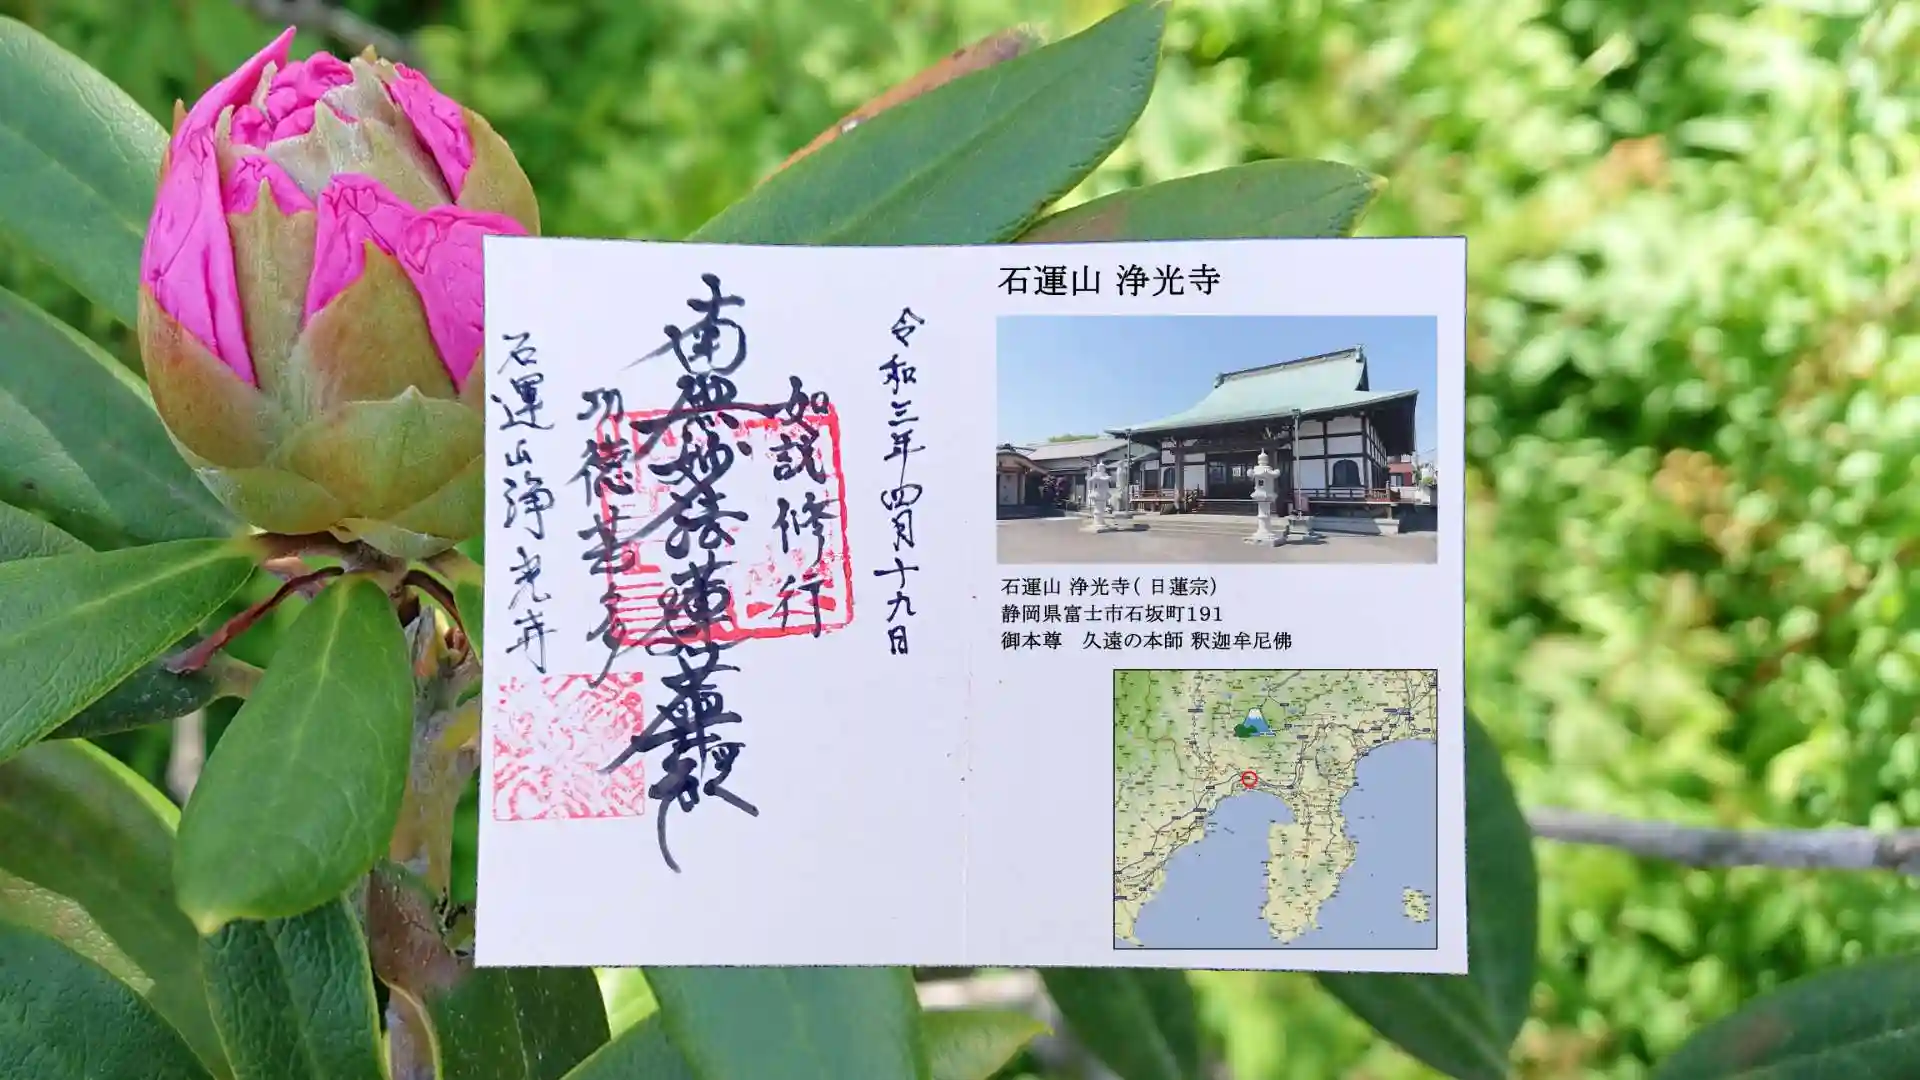 石運山 浄光寺
石運山 浄光寺( 日蓮宗)
静岡県富士市石坂町191
御本尊　久遠の本師 釈迦牟尼佛
令和三年四月十九日
如説修行
南無妙法蓮華經
功徳甚多
石運山浄光寺